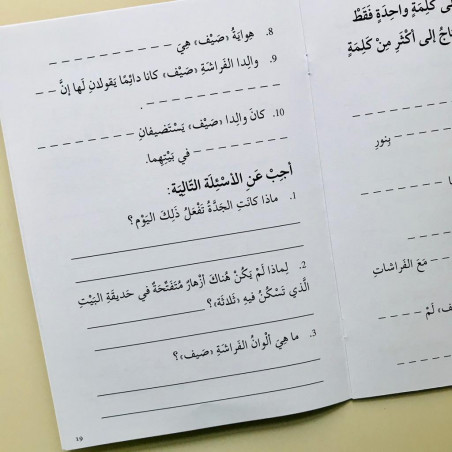 كَلِمَةٍ واحِدَةٍ فَقَطْ
إلى أكْثَرِ مِنْ كَلِمَةٍ
_ _ _ _ بِنورِ
_ _ مَعَ الفَراشاتِ
_ _ _ لَمْ
8. هِوايَةُ «صَيْف» هِيَ _ _ _ _ _ _ _ _ _
9. والِدا الفَراشَةِ «صَيْف» كانا دائِمًا يَقولانِ لَها إنَّ _ _
_ _ _ _ _ _ _ _ _ .
10. كانَ والِدا «صَيْف» يَسْتَضيفانِ _ _ _ _ _ _ _ _
_ _ _ _ _ _ في بَيْتِهِما.
أجِبْ عَنِ الأسْئِلَة التّالِيَة:
1. ماذا كانَتِ الجَدَّةُ تَفْعَلُ ذَلِكَ اليَوْم؟
2. لِماذا لَمْ يَكُنْ هُناكَ أزْهارٌ مُتَفَتِّحَةٌ في حَديقَةِ البَيْتِ
الَّذي تَسْكُنُ فيهِ «ثَلاثَة»؟
3. ما هِيَ ألْوانُ الفَراشَةِ «صَيف»؟
19